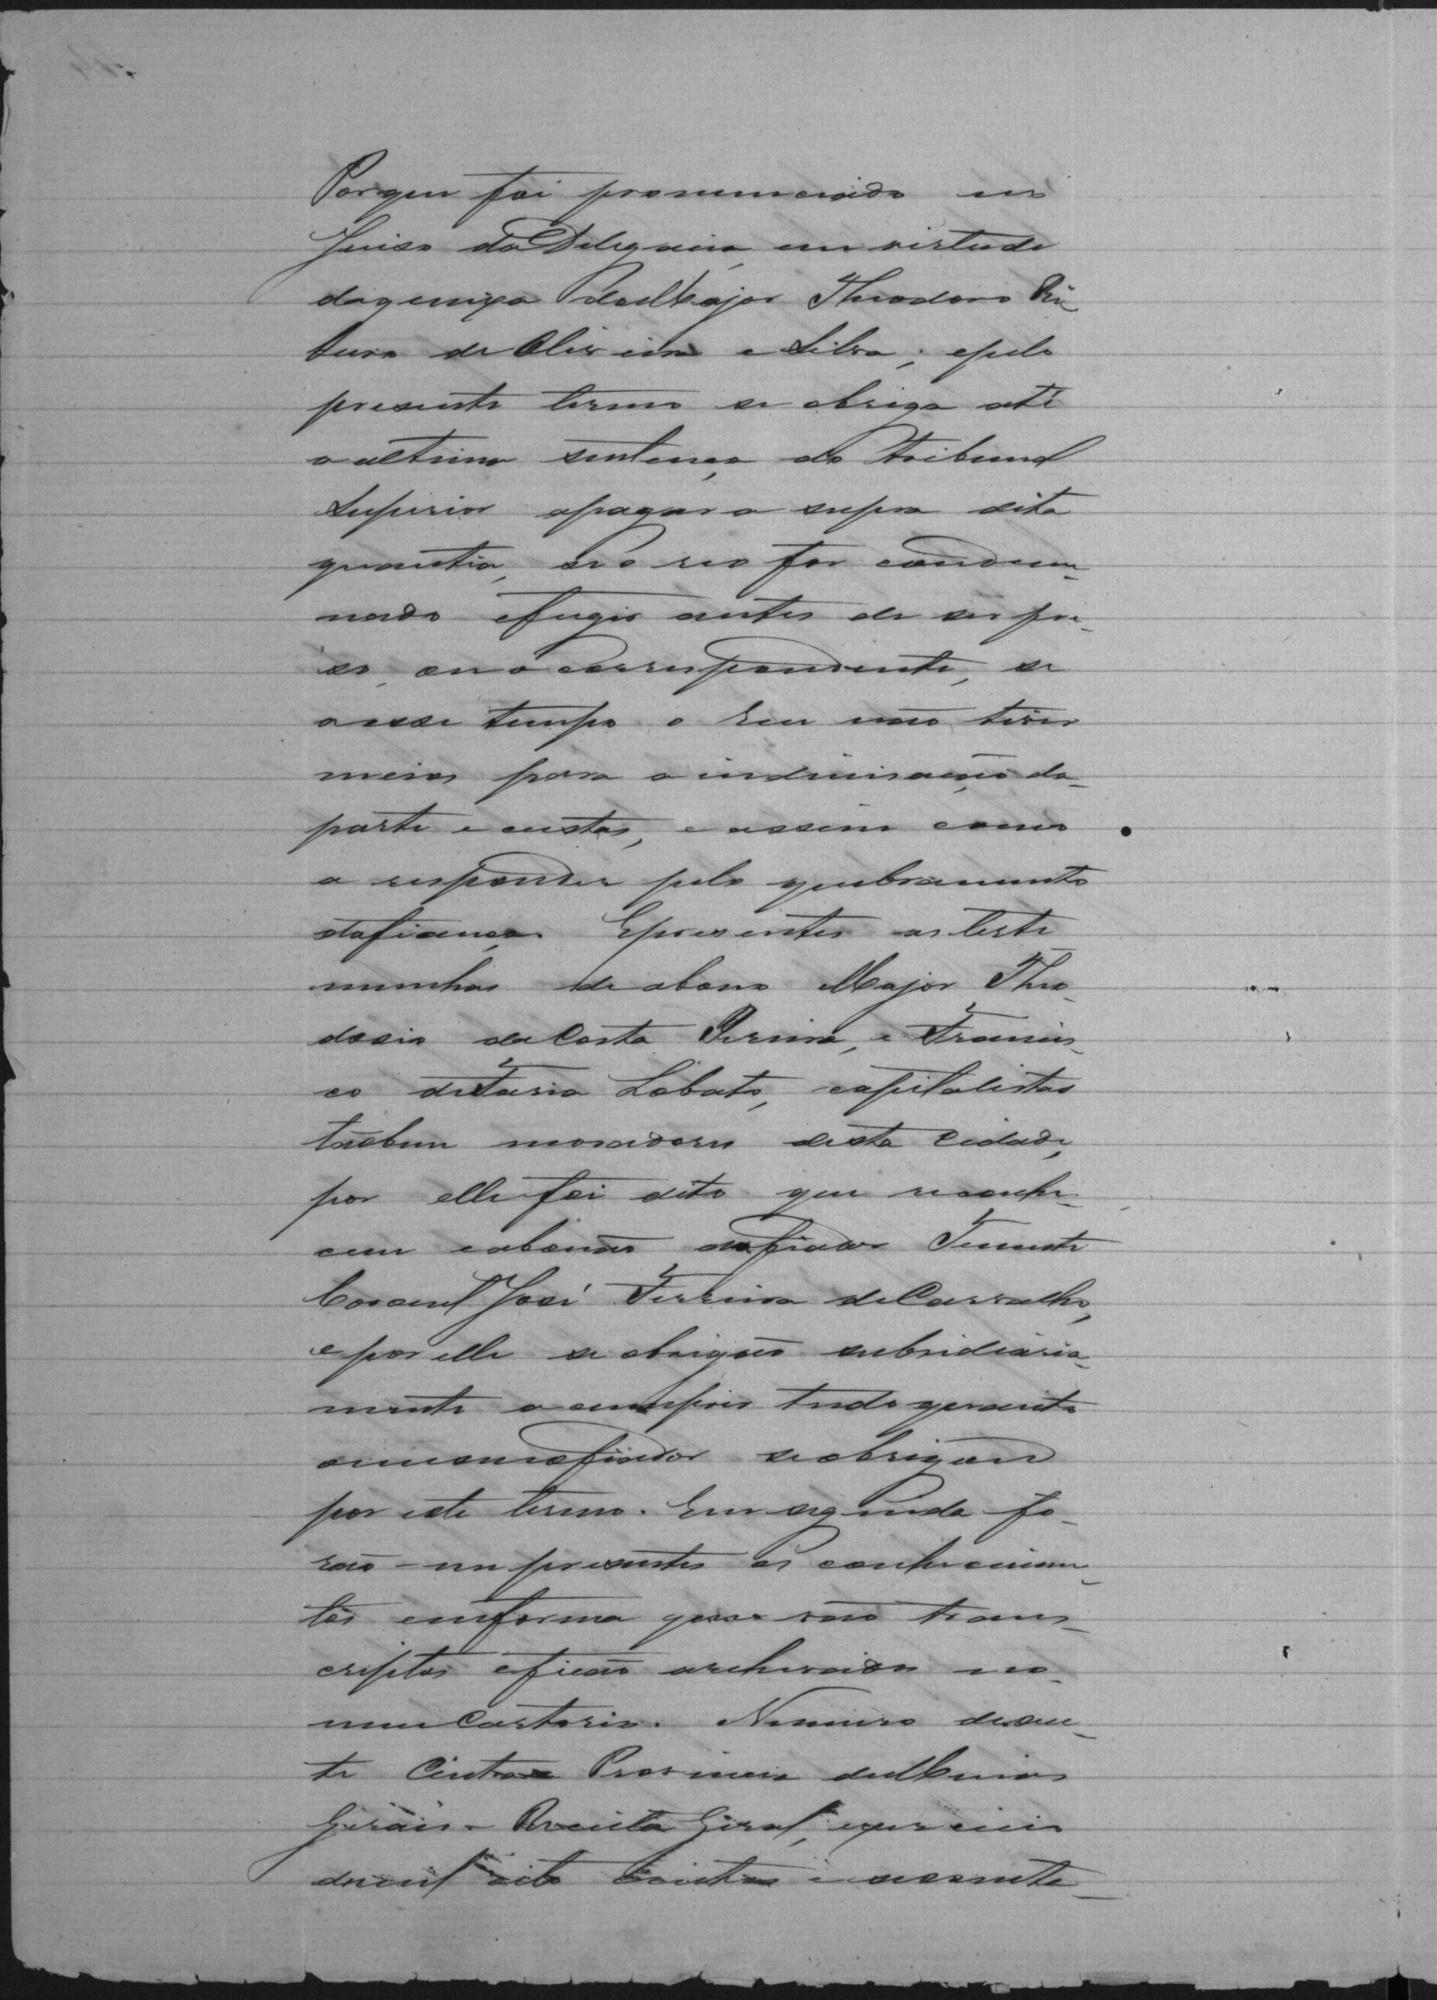 Porque foi pronunciado no
Juiso da Delegacia, em virtude
daqueixa do Major Theodoro Ri
beiro de Oliveira e Silva; epelo
presente termo se obriga até
a ultima sentença do tribunal
Superior apagar a supra dita
quantia, se o reo for condem-
nado efugir antes de ser pre-
so, ou o correspondente, se
a esse tempo o reu não tiver
meios para a indenisação da
parte e custas, e assim como
a responder pelo quebramento
dafiança. Epresentes as teste
munhas de abono Major Theo-
dosio da Costa Pereira, e Francis-
co de Faria Lobato, capitalistas
tãobem moradores desta Cidade,
por elle foi dito que reconhe-
cem eabonão aofiador Tenente
Coronel José Ferreira de Carvalho,
e por elle se obrigão subsidiaria-
mente a cumprir tudo quanto
omesmofiador se obrigou
por este termo. Em seguida fo-
rão-me presentes os conhecimen-
tos emforma que vão trans-
criptos eficão archivados no
meu Cartorio. Numero desse-
te Cento Provincia de Minas
Geraes - Receita Geral, exercicio
demil oito centos e sessenta-